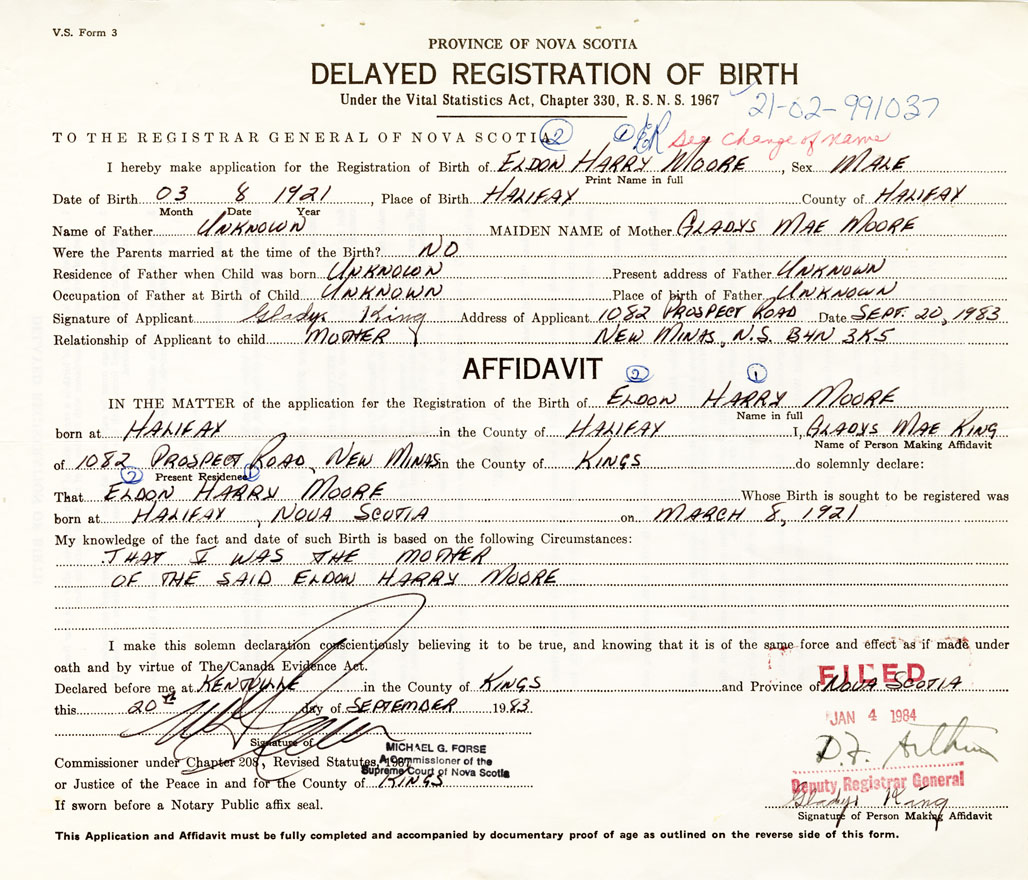 V.S. Form 3
PROVINCE OF NOVA SCOTIA
DELAYED REGISTRATION OF BIRTH
Under the Vital Statistics Act, Chapter 330, R.S.N.S. 1967
21-02-991037
TO THE REGISTRAR GENERAL OF NOVA SCOTIA 2 1 See Change of name
I hereby make application for the Registration of Birth of ELDON HARRY MOORE, Sex MALE
Print Name in full
Date of Birth 03 8 1921, Place of Birth HALIFAX County of HALIFAX
Month Date Year
Name of Father UNKNOWN MAIDEN NAME of Mother GLADYS MAE MOORE
Were the Parents married at the time of the Birth? NO
Residence of Father when Child was born UNKNOWN Present address of Father UNKNOWN
Occupation of Father at Birth of Child UNKNOWN Place of birth of Father UNKNOWN
Signature of Applicant Gladys King Address of Applicant 1082 PROSPECT ROAD Date SEPT. 20, 1983
Relationship of Applicant to child MOTHER NEW MINAS, N.S. B4N 3K5
AFFIDAVIT
2 1
IN THE MATTER of the application for the Registration of the Birth of ELDON HARRY MOORE
Name in full
born at HALIFAX in the County of HALIFAX I, GLADYS MAE KING
Name of Person Making Affidavit
of 1082 PROSPECT ROAD, NEW MINAS in the County of KINGS do solemnly declare:
2 Present Residence 1
That ELDON HARRY MOORE Whose Birth is sought to be registered was
born at HALIFAX, NOVA SCOTIA on MARCH 8, 1921
My knowledge of the fact and date of such Birth is based on the following Circumstances:
THAT I WAS THE MOTHER
OF THE SAID ELDON HARRY MOORE
I make this solemn declaration conscientiously believing it to be true, and knowing that it is of the same force and effect as if made under
oath and by virtue of The Canada Evidence Act.
FILED
Declared before me at KENTVILLE in the County of KINGS and Province of NOVA SCOTIA
this 20th day of SEPTEMBER 1983
JAN 4 1984
Signature of
MICHAEL G. FORSE
A Commissioner of the
Supreme Court of Nova Scotia
Commissioner under Chapter 208, Revised Statutes, 1967
Deputy Registrar General
or Justice of the Peace in and for the County of KINGS
Gladys King
If sworn before a Notary Public affix seal.
Signature of Person Making Affidavit
This Application and Affidavit must be fully completed and accompanied by documentary proof of age as outlined on the reverse side of this form.